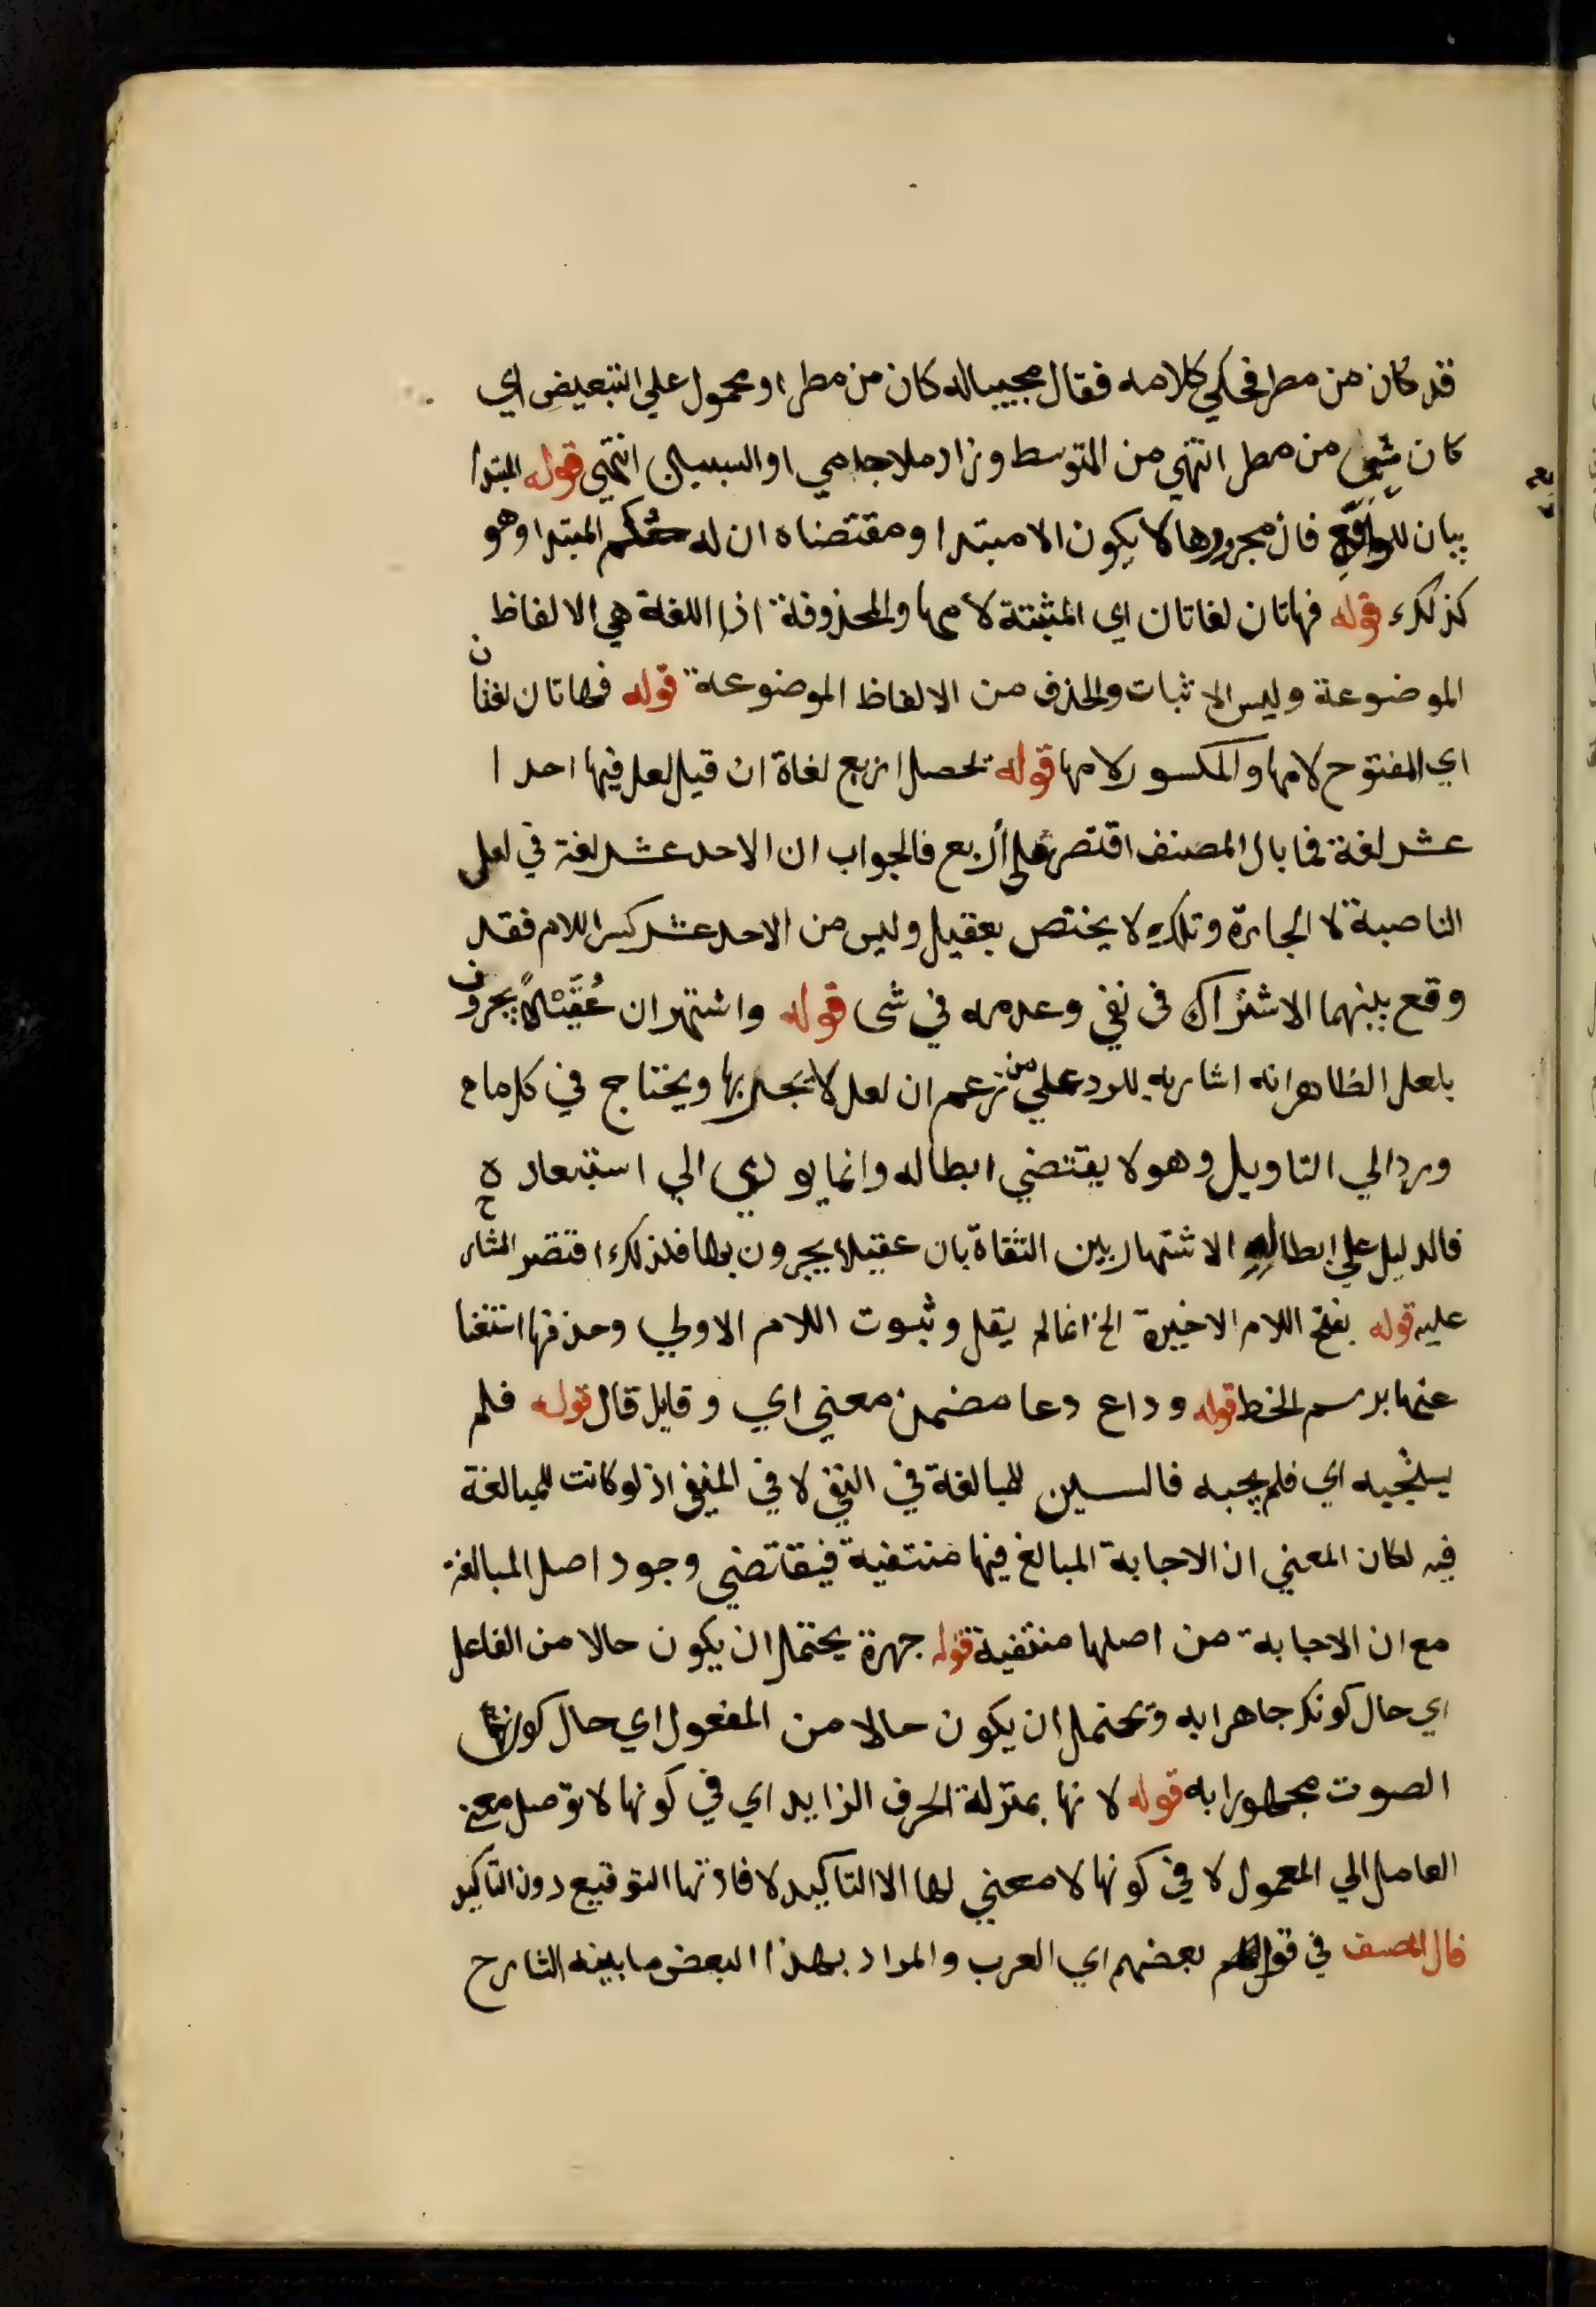 قد كان من مطر فحكي كلامه فقال مجيباله كان من مطر او محمول علي التبعيض اي
كان شي من مطر انتهي من المتوسط وزاد ملاجامي او السببيل انتهي قوله المبتدا
بيان للواقع فان مجرورها لا يكون الا مبتدا ومقتضاه ان له حكم المبتدا وهو
كذلك قوله فهاتان لغاتان اي المثبتة لامها والمحذوفة اذا اللغة هي الالفاظ
الموضوعة وليس الاثبات والحذف من الالفاظ الموضوعة قوله فهاتان لغتان
اي المفتوح لامها والمكسور لامها قوله تحصل اربع لغاة ان قيل لعل فيها احدا
عشر لغة فما بال المصنف اقتصر علي أربع فالجواب ان الاحد عشر لغة في لعل
الناصبة لا الجارة وتلك لا يختص بعقيل وليس من الاحد عشر كسر اللام فقد
وقع بينهما الاشتراك في نفي وعدمه في شي قوله واشتهر ان عُقَيْلاً يجرون
بلعل الظاهر انه اشار به للرد علي من زعم ان لعل لا يجر بها ويحتاج في كل ما
ورد الي التاويل وهو لا يقتضي ابطاله وانما يودي الي استبعاده
فالدليل علي ابطاله الاشتهار بين الثقاة بان عقيلا يجرون بها فلذلك اقتصر الشار
عليه قوله بفتح اللام الاخيرة الخ انما لم يقل وثبوت اللام الاولي وحذفها استغنا
عنها برسم الخط قوله وداع دعا مضمن معني اي وقايل قال قوله فلم
يستجبه اي فلم يجبه فالسين للمبالغة في النفي لا في المنفي اذ لو كانت للمبالغة
فيه لكان المعني ان الاجابة المبالغ فيها منتفية فيقاتضي وجود اصل المبالغة
مع ان الاجابة من اصلها منتفية قوله جهرة يحتمل ان يكون حالا من الفاعل
اي حال كونك جاهرا به ويحتمل ان يكون حالا من المفعول اي حال كون
الصوت مجهورا به قوله لانها بمنزلة الحرف الزايد اي في كونها لا توصل معني
العامل الي المعمول لا في كونها لا معني لها الا التاكيد لافادتها التوقيع دون التاكيد
قال المصنف في قولهم بعضهم اي العرب والمراد بهذا البعض ما بينه الشارح